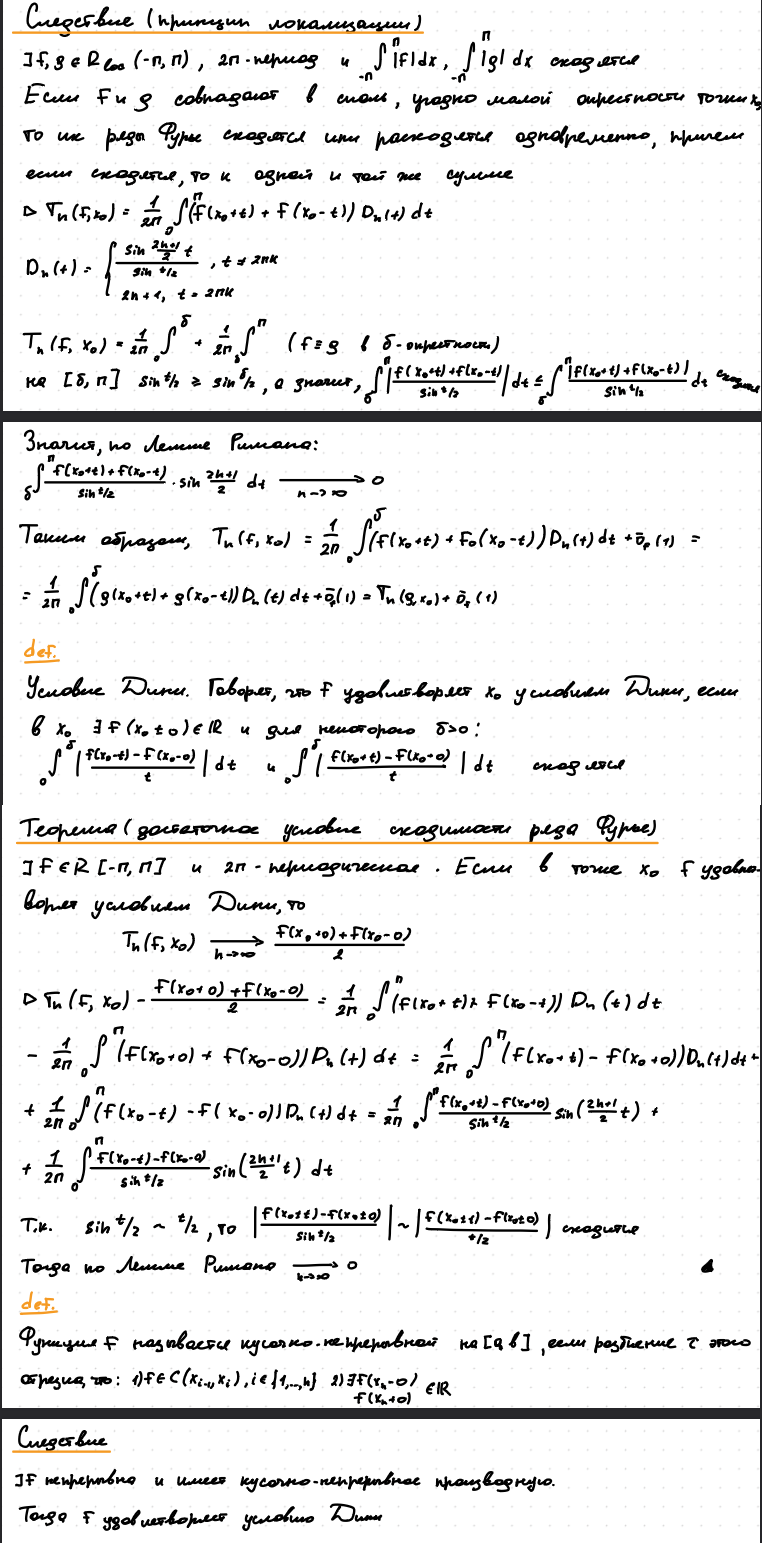 Следствие (принцип локализации)
∃ f, g ∈ R_loc (-π, π), 2π-период и ∫_{-π}^{π} |f| dx, ∫_{-π}^{π} |g| dx сходятся
Если f и g совпадают в сколь, угодно малой окрестности точки x₀
то их ряды Фурье сходятся или расходятся одновременно, причем
если сходятся, то к одной и той же сумме
▷ T_n(f, x₀) = 1/2π ∫_0^π (f(x₀+t) + f(x₀-t)) D_n(t) dt
D_n(t) = { sin (2n+1)/2 t / sin t/2, t ≠ 2πk
2n+1, t = 2πk
T_n(f, x₀) = 1/2π ∫_0^δ + 1/2π ∫_δ^π (f ≡ g в δ-окрестности)
на [δ, π] sin t/2 ≥ sin δ/2, а значит, ∫_δ^π |(f(x₀+t)+f(x₀-t))/sin t/2| dt ≤ ∫_δ^π |f(x₀+t)+f(x₀-t)|/sin t/2 dt
Значит, по Лемме Римана:
∫_δ^π (f(x₀+t)+f(x₀-t))/sin t/2 · sin (2n+1)/2 dt →_{n→∞} 0
Таким образом, T_n(f, x₀) = 1/2π ∫_0^δ (f(x₀+t) + f₀(x₀-t)) D_n(t) dt + ō_f(1) =
= 1/2π ∫_0^δ (g(x₀+t) + g(x₀-t)) D_n(t) dt + ō(1) = T_n(g, x₀) + ō(1)
def.
Условие Дини. Говорят, что f удовлетворяет x₀ условиям Дини, если
в x₀ ∃ f(x₀±0) ∈ ℝ и для некоторого δ>0:
∫_0^δ |(f(x₀-t) - f(x₀-0))/t| dt и ∫_0^δ |(f(x₀+t) - f(x₀+0))/t| dt сходятся
Теорема (достаточное условие сходимости ряда Фурье)
∃ f ∈ R [-π, π] и 2π-периодическая. Если в точке x₀ f удовле-
ворят условиям Дини, то
T_n(f, x₀) →_{n→∞} (f(x₀+0) + f(x₀-0))/2
▷ T_n(f, x₀) - (f(x₀+0) + f(x₀-0))/2 = 1/2π ∫_0^π (f(x₀+t) + f(x₀-t)) D_n(t) dt
- 1/2π ∫_0^π (f(x₀+0) + f(x₀-0)) D_n(t) dt = 1/2π ∫_0^π (f(x₀+t) - f(x₀+0)) D_n(t) dt +
+ 1/2π ∫_0^π (f(x₀-t) - f(x₀-0)) D_n(t) dt = 1/2π ∫_0^π (f(x₀+t) - f(x₀+0))/sin t/2 sin((2n+1)/2 t) +
+ 1/2π ∫_0^π (f(x₀-t) - f(x₀-0))/sin t/2 sin((2n+1)/2 t) dt
Т.к. sin t/2 ~ t/2, то |(f(x₀±t) - f(x₀±0))/sin t/2| ~ |(f(x₀±t) - f(x₀±0))/t/2| сходится
Тогда по Лемме Римана →_{n→∞} 0
def.
Функция f называется кусочно-непрерывной на [a, b], если разбиение τ этого
отрезка, что: 1) f ∈ C(x_{i-1}, x_i), i ∈ {1,...,n} 2) ∃ f(x_k-0) f(x_k+0) ∈ ℝ
Следствие
∃ f непрерывна и имеет кусочно-непрерывное производную.
Тогда f удовлетворяет условию Дини